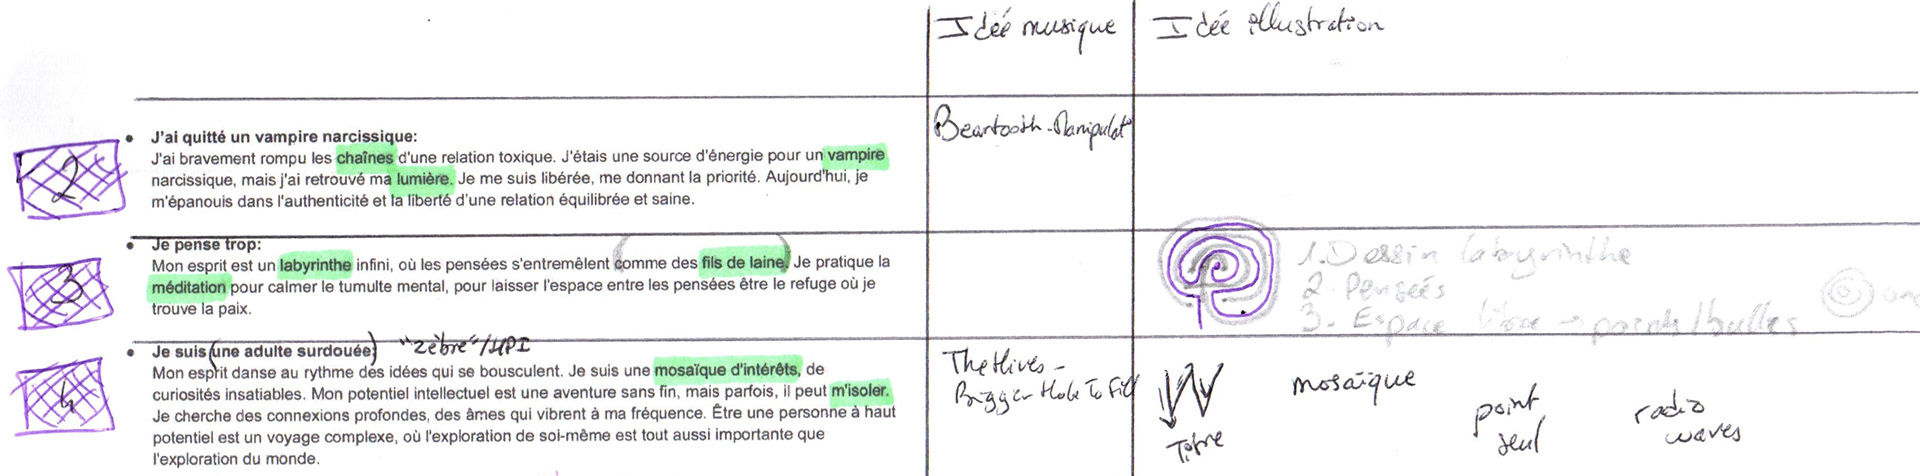 Idée musique
Idée illustration
• J'ai quitté un vampire narcissique:
Beartooth - Manipulat
2
J'ai bravement rompu les chaînes d'une relation toxique. J'étais une source d'énergie pour un vampire
narcissique, mais j'ai retrouvé ma lumière. Je me suis libérée, me donnant la priorité. Aujourd'hui, je
m'épanouis dans l'authenticité et la liberté d'une relation équilibrée et saine.
• Je pense trop:
3
Mon esprit est un labyrinthe infini, où les pensées s'entremêlent (comme des fils de laine). Je pratique la
méditation pour calmer le tumulte mental, pour laisser l'espace entre les pensées être le refuge où je
trouve la paix.
1. Dessin labyrinthe
2. Pensées
3. Espace libre → points/bulles
• Je suis (une adulte surdouée:) "zèbre"/HPI
4
Mon esprit danse au rythme des idées qui se bousculent. Je suis une mosaïque d'intérêts, de
curiosités insatiables. Mon potentiel intellectuel est une aventure sans fin, mais parfois, il peut m'isoler.
Je cherche des connexions profondes, des âmes qui vibrent à ma fréquence. Être une personne à haut
potentiel est un voyage complexe, où l'exploration de soi-même est tout aussi importante que
l'exploration du monde.
The Hives -
Bigger Hole To Fill
mosaïque
point
seul
radio
waves